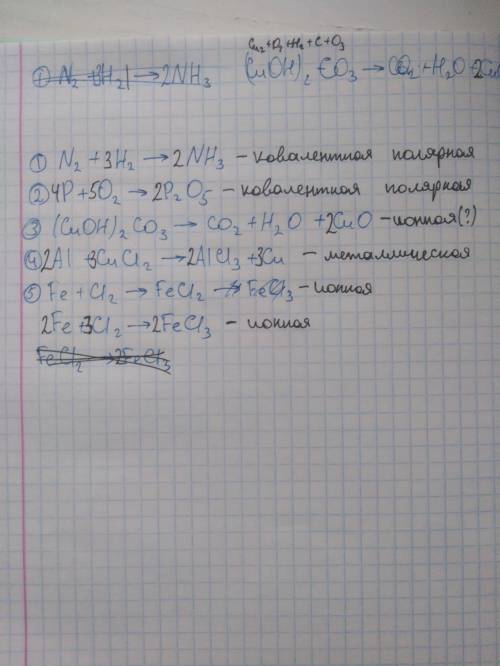 Cu₂ + O₂ + H₂ + C + O₃
① N₂ + 3H₂ → 2NH₃ (CuOH)₂CO₃ → CO₂ + H₂O + 2Cu
① N₂ + 3H₂ → 2NH₃ – ковалентная полярная
② 4P + 5O₂ → 2P₂O₅ – ковалентная полярная
③ (CuOH)₂CO₃ → CO₂ + H₂O + 2CuO – ионная(?)
④ 2Al + 3CuCl₂ → 2AlCl₃ + 3Cu – металлическая
⑤ Fe + Cl₂ → FeCl₂ → FeCl₃ – ионная
2Fe + 3Cl₂ → 2FeCl₃ – ионная
FeCl₂ → 2FeCl₃